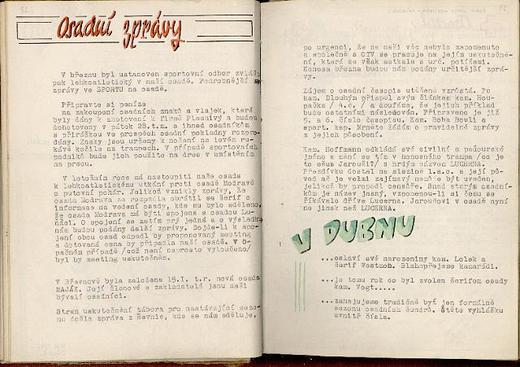 Osadní zprávy
V březnu byl ustanoven sportovní odbor zvláš
pak lehkoatletický v naší osadě. Podrobnější
zprávy ve SPORTU na osadě.
Připravte si peníze
na zakoupení osadních znaků a vlajek, které
byly dány k zhotovení k firmě Plasnivý a budou
zhotoveny v pátek 25.t.m. a ihned osadníkům
s přirážkou v prospěch osadní pokladny rozpro-
dány. Znaky jsou určeny k nošení na levém ru-
kávě košile na trampech. V případě sportovních
podniků bude jich použito na drese v umístění
na prsou.
V letošním roce má nastoupiti naše osada
k lehkoatletickému utkání proti osadě Modravě
o putovní pohár. Jelikož vznikly zprávy, že
osada Modrava se rozpadla obrátil se šerif o
informace na vedení osady, kde mu bylo sděleno,
že osada Modrava má býti spojena s osadou Lu-
nádí. O spojení se zatím prý jedná a o výsledku
nám budou podány další zprávy. Dojde-li k spo-
jení obou osad odpadl by propono­vaný meeting
a dotovaná cena by připadla naší osadě. V o-
pačném případě /což není naprosto vyloučeno/
byl by meeting uskutečněn.
V Břevnově byla založena 15.I. t.r. nová osada
MAJÁK. Její členové a zakladatelé jsou naši
bývalí osadníci.
Stran uskutečnění tábora pro nastávající sezo-
nu došla zpráva z Řevnic, kde se nám sděluje,
po urgenci, že na naši věc nebylo zapomenuto
a společně s ČTV se pracuje na jejím uskuteč-
nění, která se však setkala s urč. potížemi.
Koncem března budou nám podány určitější zprá-
vy.
Zájem o osadní časopis utěšeně vzrůstá. Po
kam. Dlouhým přispěl svým článkem kam. Rou-
bařka /4.č./ a doufáme, že jejich příklad
bude ostatními následován. Připravено je již
5. a 6. číslo časopisu. Kam. Boba Dovali a
sport. kam. Mrněte žádám o pravidelné zprávy
z jejich působení.
Kam. Hoffmann odkládá své civilní a pseudorské
jméno a zmí se tím v honosného trampa /co je
to oběs Jaroušů?/ a hrdým názvem LUCERNA.
Přesdívka dostal na slezině 1.a.o. a její pů-
vod ač je velmi zajímavý nemůže být uveden,
jelikož by propadl censuře. Snad starým osadní-
kům je název jasný, vzpomenou-li si čemu se
říkávalo dříve Lucerna. Jaroušovi v osadě nyní
no jinak než LUCERNA.
V DUBNU
...oslaví své narozeniny kam. Lolek a
šerif Vostnob. Blahopřejeme kamarádi.
...je tomu rok co byl zvolen šerifem osady
kam. Vogt.....
...zahajujeme tradičně byť jen formálně
sezonu osadních čundrů. Čtěte vyhlášku
uvnitř čísla.